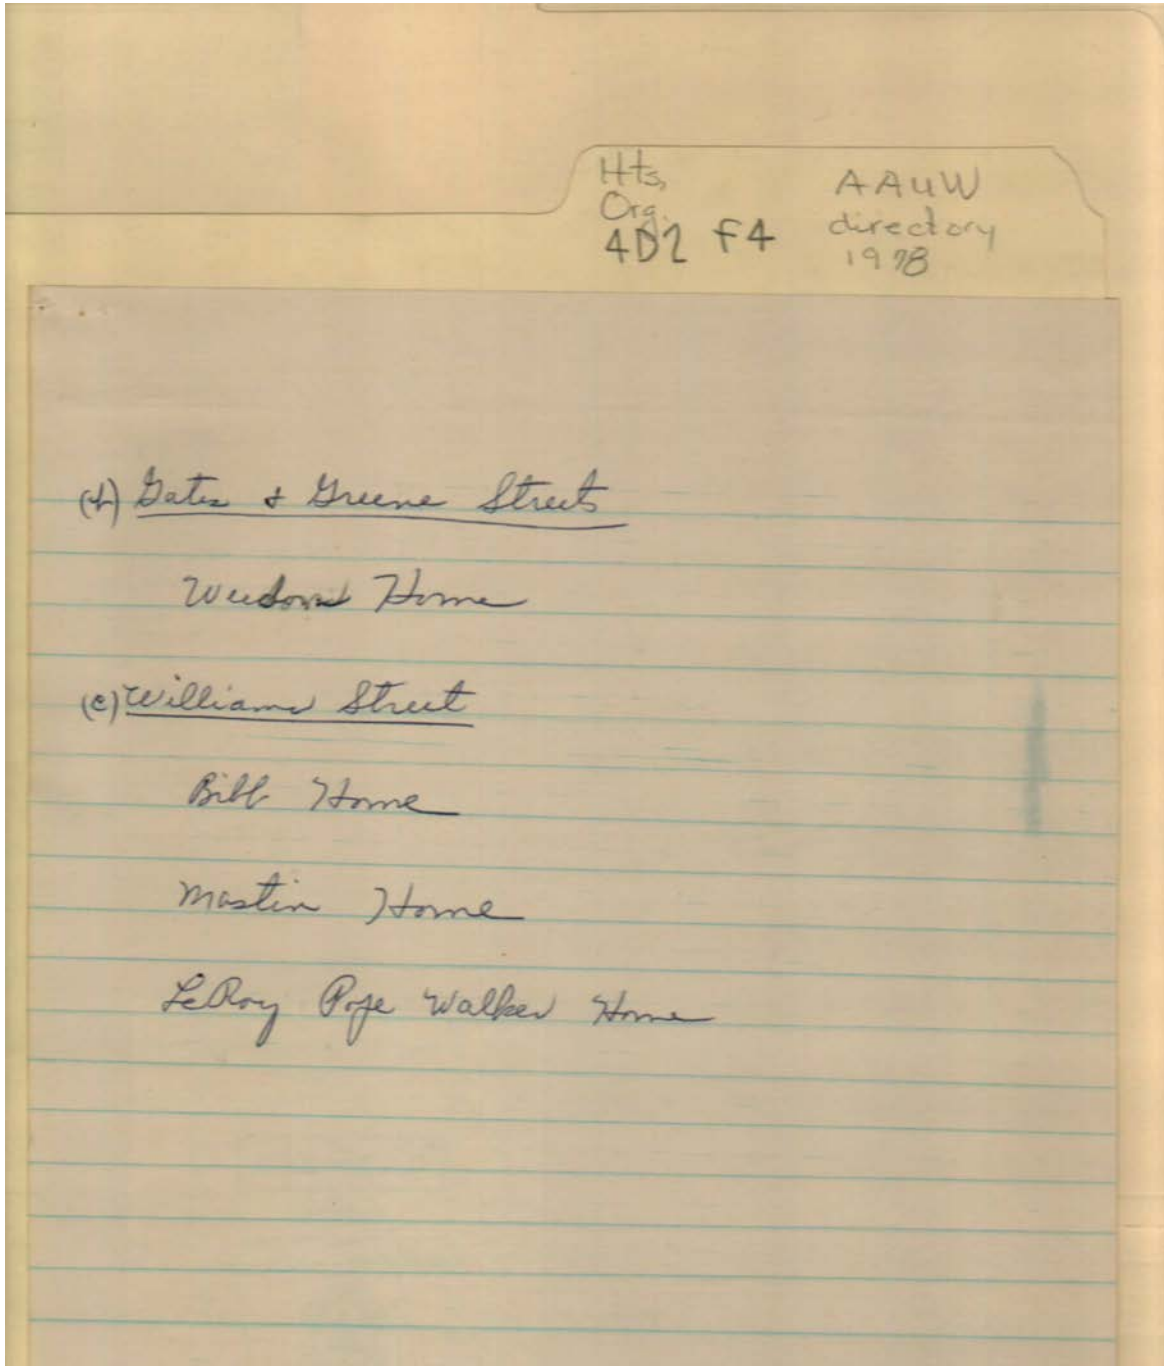 Hts,
Org.
4D2 F4
AAUW
directory
1978
(d) Gates & Greene Streets
Weedon Home
(e) Williams Street
Bibb Home
Mastin Home
LeRoy Pope Walker Home